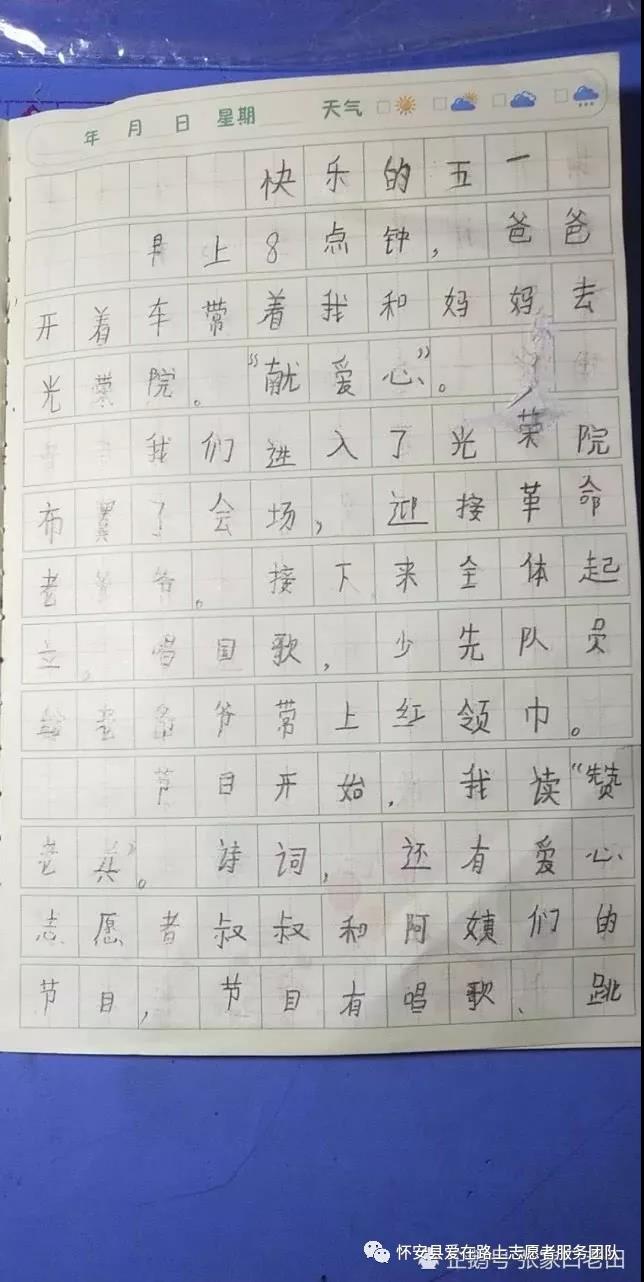 年 月 日 星期 天气
快乐的五一
早上8点钟，爸爸
开着车带着我和妈妈去
光荣院。“献爱心”。
我们进入了光荣院
布置了会场，迎接革命
老爷爷。接下来全体起
立，唱国歌，少先队员
给老爷爷带上红领巾。
节目开始，我读“赞
老兵”。诗词，还有爱心
志愿者叔叔和阿姨们的
节目，节目有唱歌、跳
怀安县爱在路上志愿者服务团队
企鹅号 张家口老田